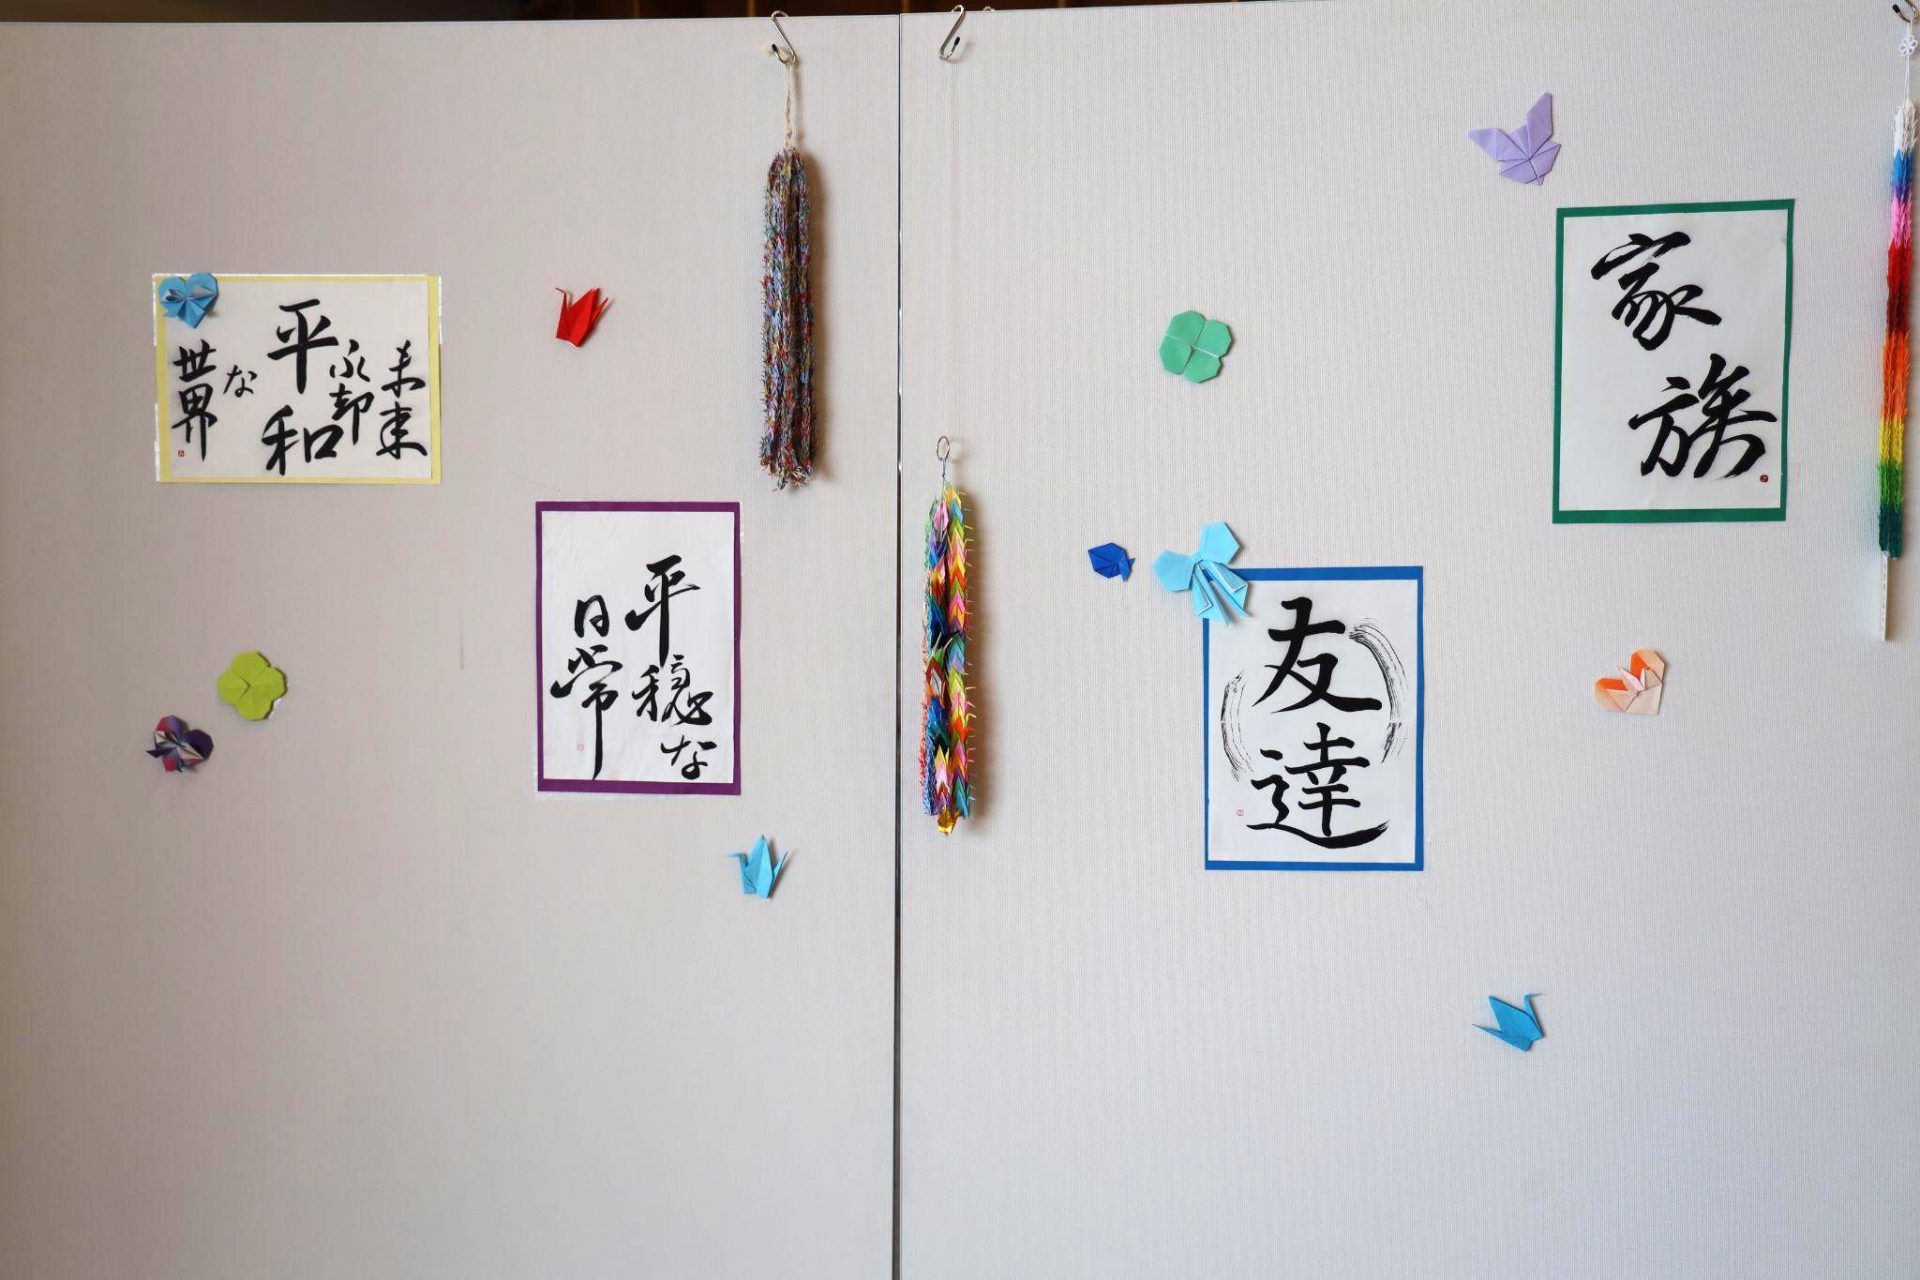 未来
永却
平和
な
世界
平穏な
日常
友達
家族